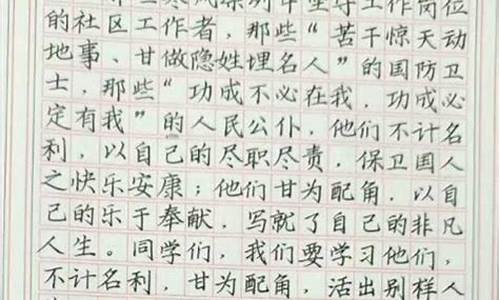 寒风凛冽中坚守工作岗位
的社区工作者，那些“苦干惊天动
地事、甘做隐姓埋名人”的国防卫
士，那些“功成不必在我，功成必
定有我”的人民公仆，他们不计名
利，以自己的尽职尽责，保卫国人
之快乐安康；他们甘为配角，以自
己的乐于奉献，写就了自己的非凡
人生。同学们，我们要学习他们，
不计名利，甘为配角，活出别样人